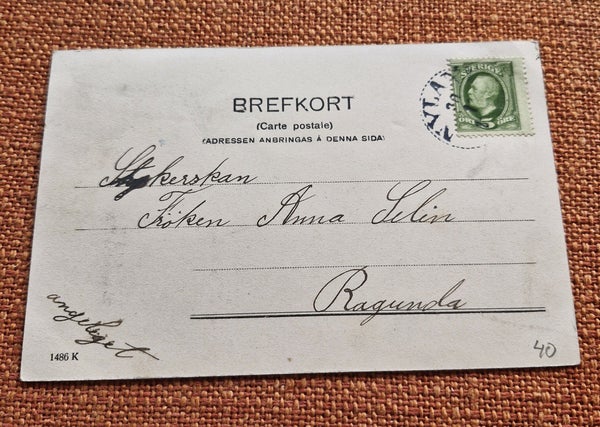 BREFKORT
(Carte postale)
(ADRESSEN ANBRINGAS Å DENNA SIDA)
SVERIGE
ÖRE 5 ÖRE
NYLA
30
Styckerskan
Fröken Anna Selin
Ragunda
angeläget
1486 K
40